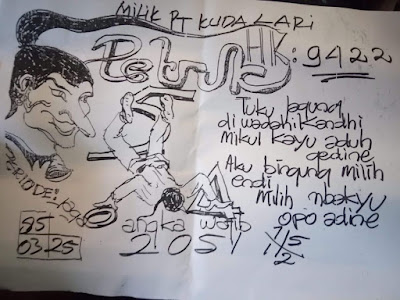 MILIK PT KUDA LARI
HK: 9422
Tuku jagung
di wadahi kandhi
Mikul kayu aduh
gedine
Aku bingung milih
endi
Milih mbakyu
opo adine
PERIODE:
95
03 25
angka wajib
2 0 5 1
7/5
1/2